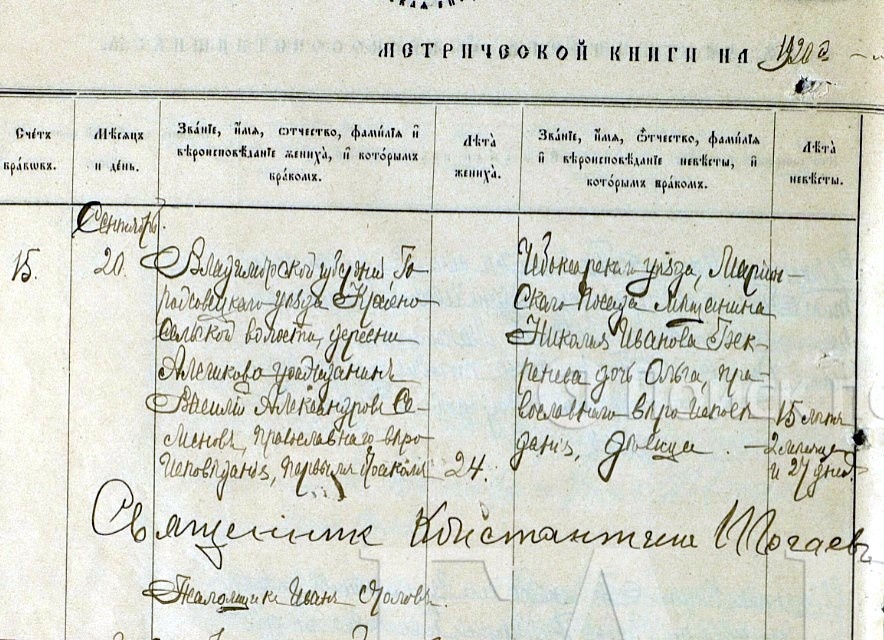 МЕТРИЧЕСКОЙ КНИГИ НА 1920 г
Счетъ браковъ.
Мѣсяцъ и день.
Званіе, имя, отчество, фамилія и вѣроисповѣданіе жениха, и которымъ бракомъ.
Лѣта жениха.
Званіе, имя, отчество, фамилія и вѣроисповѣданіе невѣсты, и которымъ бракомъ.
Лѣта невѣсты.
Сентябрь.
15.
20.
Владимирской губерніи Го-
роховецкаго уѣзда Красно
сельской волости, деревни
Алешково гражданинъ
Василій Александровъ Се-
меновъ, православнаго вѣро
исповѣданія, первымъ бракомъ
24.
Чебоксарскаго уѣзда, Маріин-
скаго Посада мѣщанина
Николая Иванова
дочь Ольга, пра-
вославнаго вѣроисповѣ
данія, дѣвица.
15 лѣтъ
2 мѣсяца
и 27 дней.
Священникъ Константинъ
Псаломщикъ Иванъ